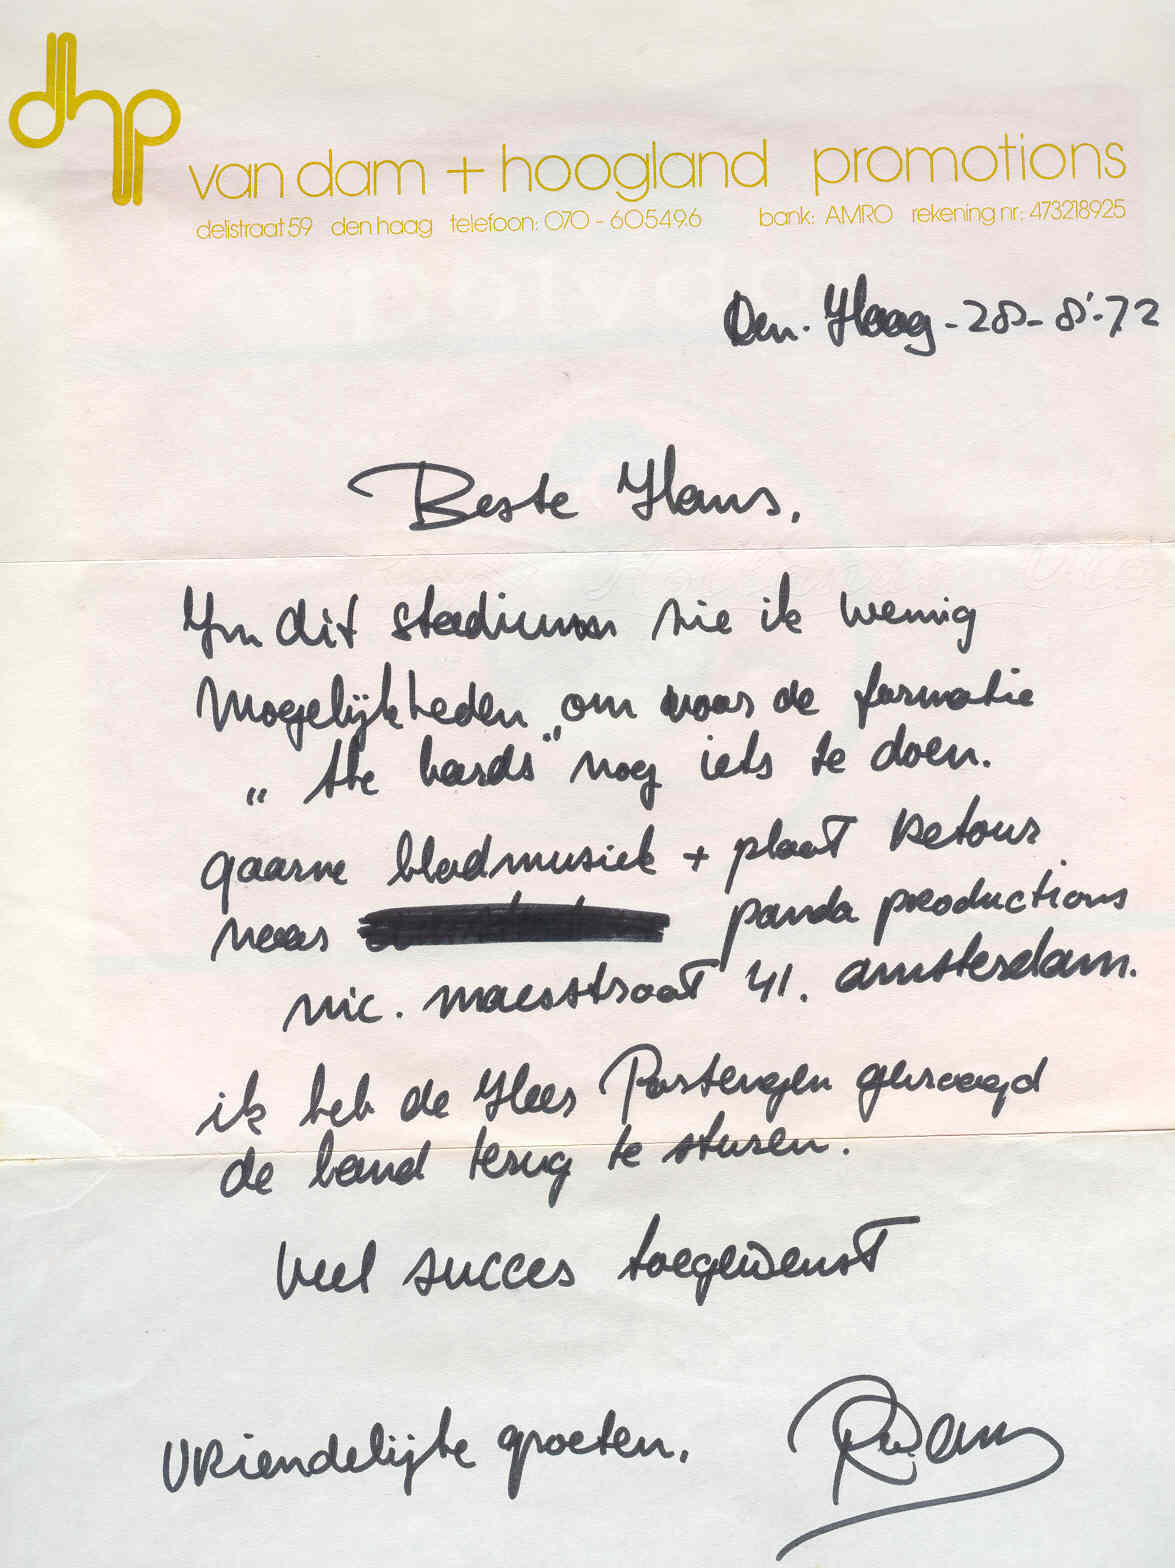 dhp
van dam + hoogland promotions
delistraat 59 den haag telefoon: 070 - 605496 bank: AMRO rekening nr.: 473218925
Den. Haag - 28 - 8 - 72
Beste Hans,
In dit stadium zie ik weinig
mogelijkheden om voor de formatie
„ the bards " nog iets te doen.
gaarne bladmusiek + plaat retour
naar panda productions
nic. maesstraat 41. amsterdam.
ik heb de Heer gevraagd
de band terug te sturen.
veel succes toegewenst
vriendelijke groeten.